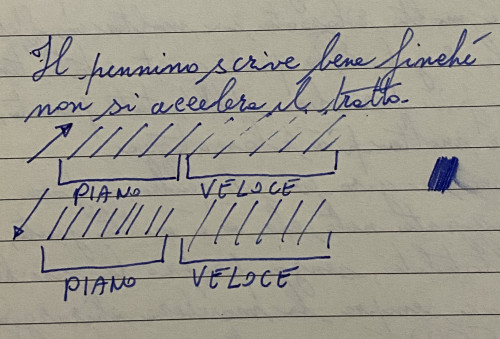 Il pennino scrive bene finché
non si accelera il tratto.
PIANO VELOCE
PIANO VELOCE